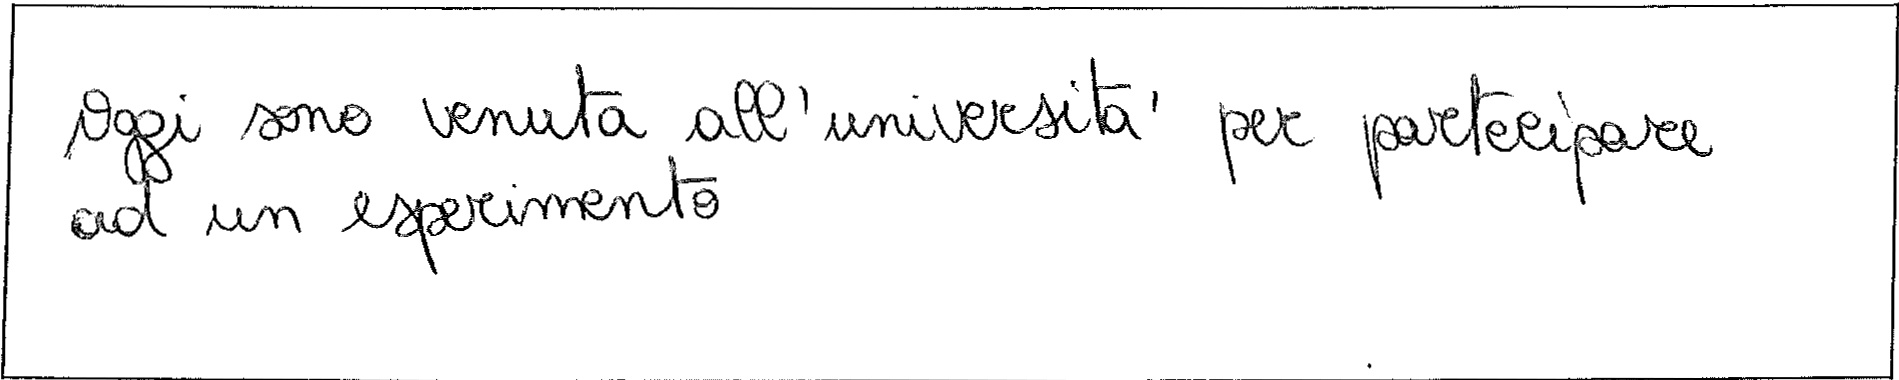 Oggi sono venuta all'universita' per partecipare
ad un esperimento